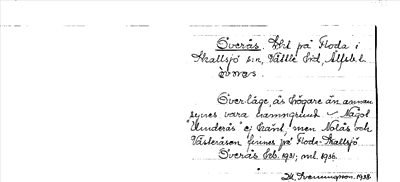 Överås. Del på Floda i
Skallsjö sn, Vättle hd, Älfsb. l.
överås.
Överläge, ås högare än annan
synes vara namngrund. – Något
"Underås" ej känt, men Nolås och
Västeråsen finnes på Floda. Skallsjö
Överås Jrb. 1931; ml. 1936.
M. Svenningson. 1938.